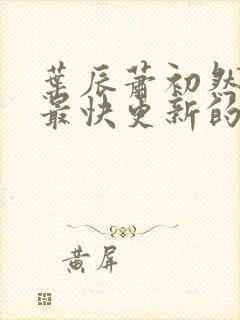 葉辰蕭初然
最快更新的
黄屏